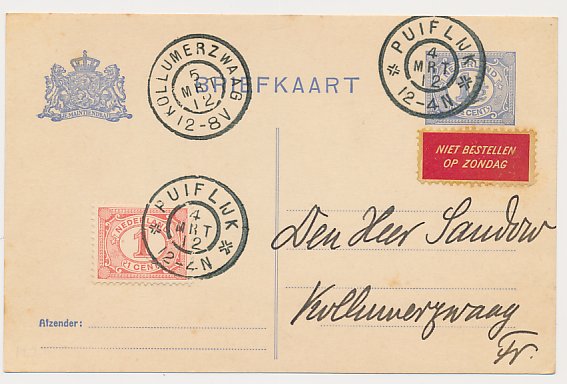 PUIFLIJK
4
MRT
12
12-4N
KOLLUMERZWAAG
5
MRT
12
12-8V
BRIEFKAART
CENT
JE MAINTIENDRAI
NIET BESTELLEN
OP ZONDAG
PUIFLIJK
4
MRT
12
12-4N
NEDERLAND
1
CENT
Den Heer Sandow
Kollumerzwaag
Fr.
Afzender: